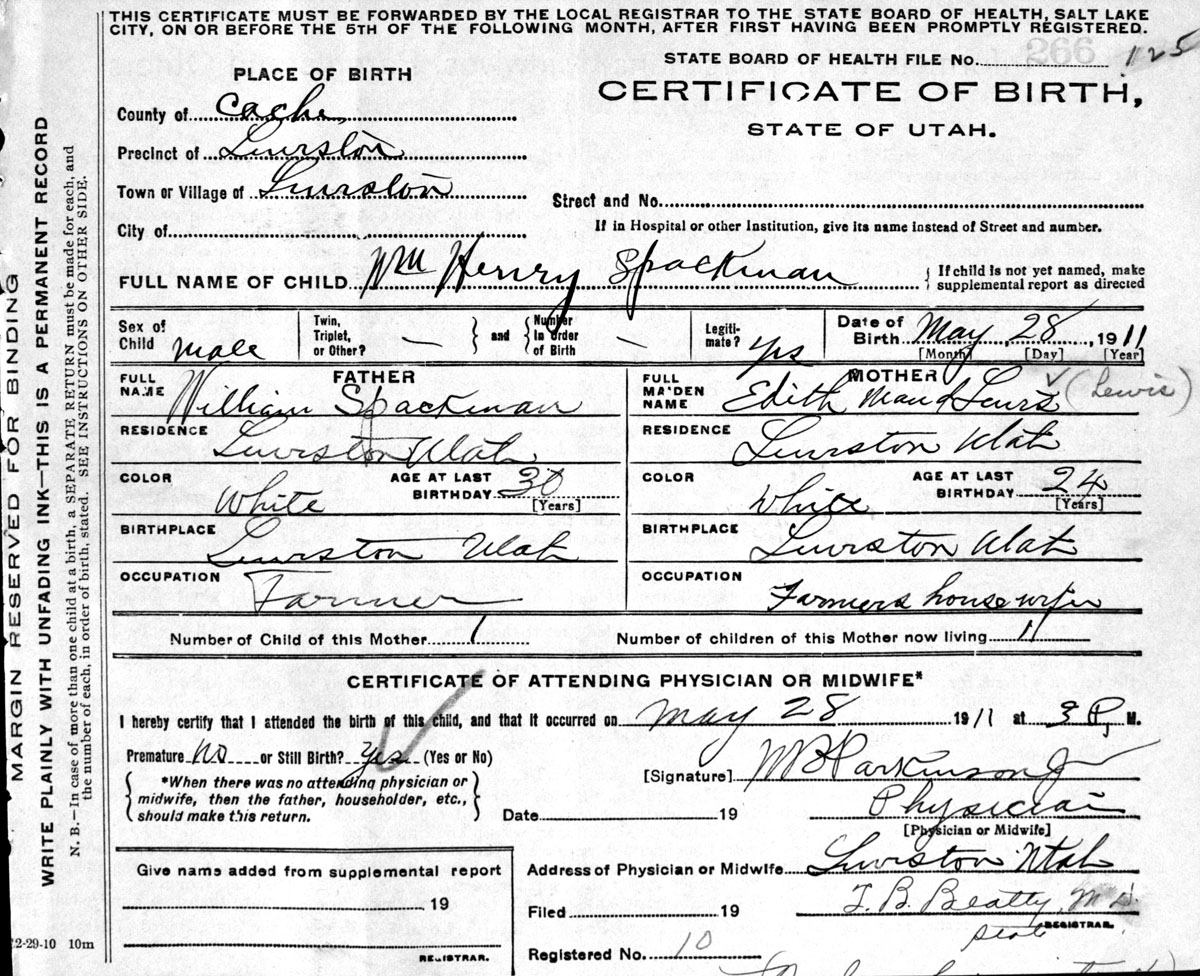 THIS CERTIFICATE MUST BE FORWARDED BY THE LOCAL REGISTRAR TO THE STATE BOARD OF HEALTH, SALT LAKE
CITY, ON OR BEFORE THE 5TH OF THE FOLLOWING MONTH, AFTER FIRST HAVING BEEN PROMPTLY REGISTERED.
266
STATE BOARD OF HEALTH FILE No. 125
PLACE OF BIRTH
CERTIFICATE OF BIRTH,
STATE OF UTAH.
County of Cache
Precinct of Lewiston
Town or Village of Lewiston
Street and No.
City of
If in Hospital or other Institution, give its name instead of Street and number.
FULL NAME OF CHILD Wm Henry Spackman { If child is not yet named, make
supplemental report as directed
Sex of Child male Twin, Triplet, or Other? — } and { Number in order of Birth — Legiti-mate? yes Date of Birth May 28, 1911
[Month] [Day] [Year]
FATHER MOTHER
FULL NAME William Spackman FULL MAIDEN NAME Edith Maud Lewis (Lewis)
RESIDENCE Lewiston Utah RESIDENCE Lewiston Utah
COLOR White AGE AT LAST BIRTHDAY 30 [Years] COLOR White AGE AT LAST BIRTHDAY 24 [Years]
BIRTHPLACE Lewiston Utah BIRTHPLACE Lewiston Utah
OCCUPATION Farmer OCCUPATION Farmers housewife
Number of Child of this Mother 1 Number of children of this Mother now living 11
CERTIFICATE OF ATTENDING PHYSICIAN OR MIDWIFE*
I hereby certify that I attended the birth of this child, and that it occurred on May 28 1911 at 3 P. M.
Premature No or Still Birth? yes (Yes or No)
[Signature] W B Parkinson Jr
*When there was no attending physician or
midwife, then the father, householder, etc.,
should make this return.
Date 19 Physician
[Physician or Midwife]
Address of Physician or Midwife Lewiston Utah
Give name added from supplemental report
19
REGISTRAR.
Filed 19 T. B. Beatty, M D.
REGISTRAR.
State
Registered No. 10
2-29-10 10m
MARGIN RESERVED FOR BINDING
WRITE PLAINLY WITH UNFADING INK—THIS IS A PERMANENT RECORD
N. B.—In case of more than one child at a birth, a SEPARATE RETURN must be made for each, and
the number of each, in order of birth, stated. SEE INSTRUCTIONS ON OTHER SIDE.